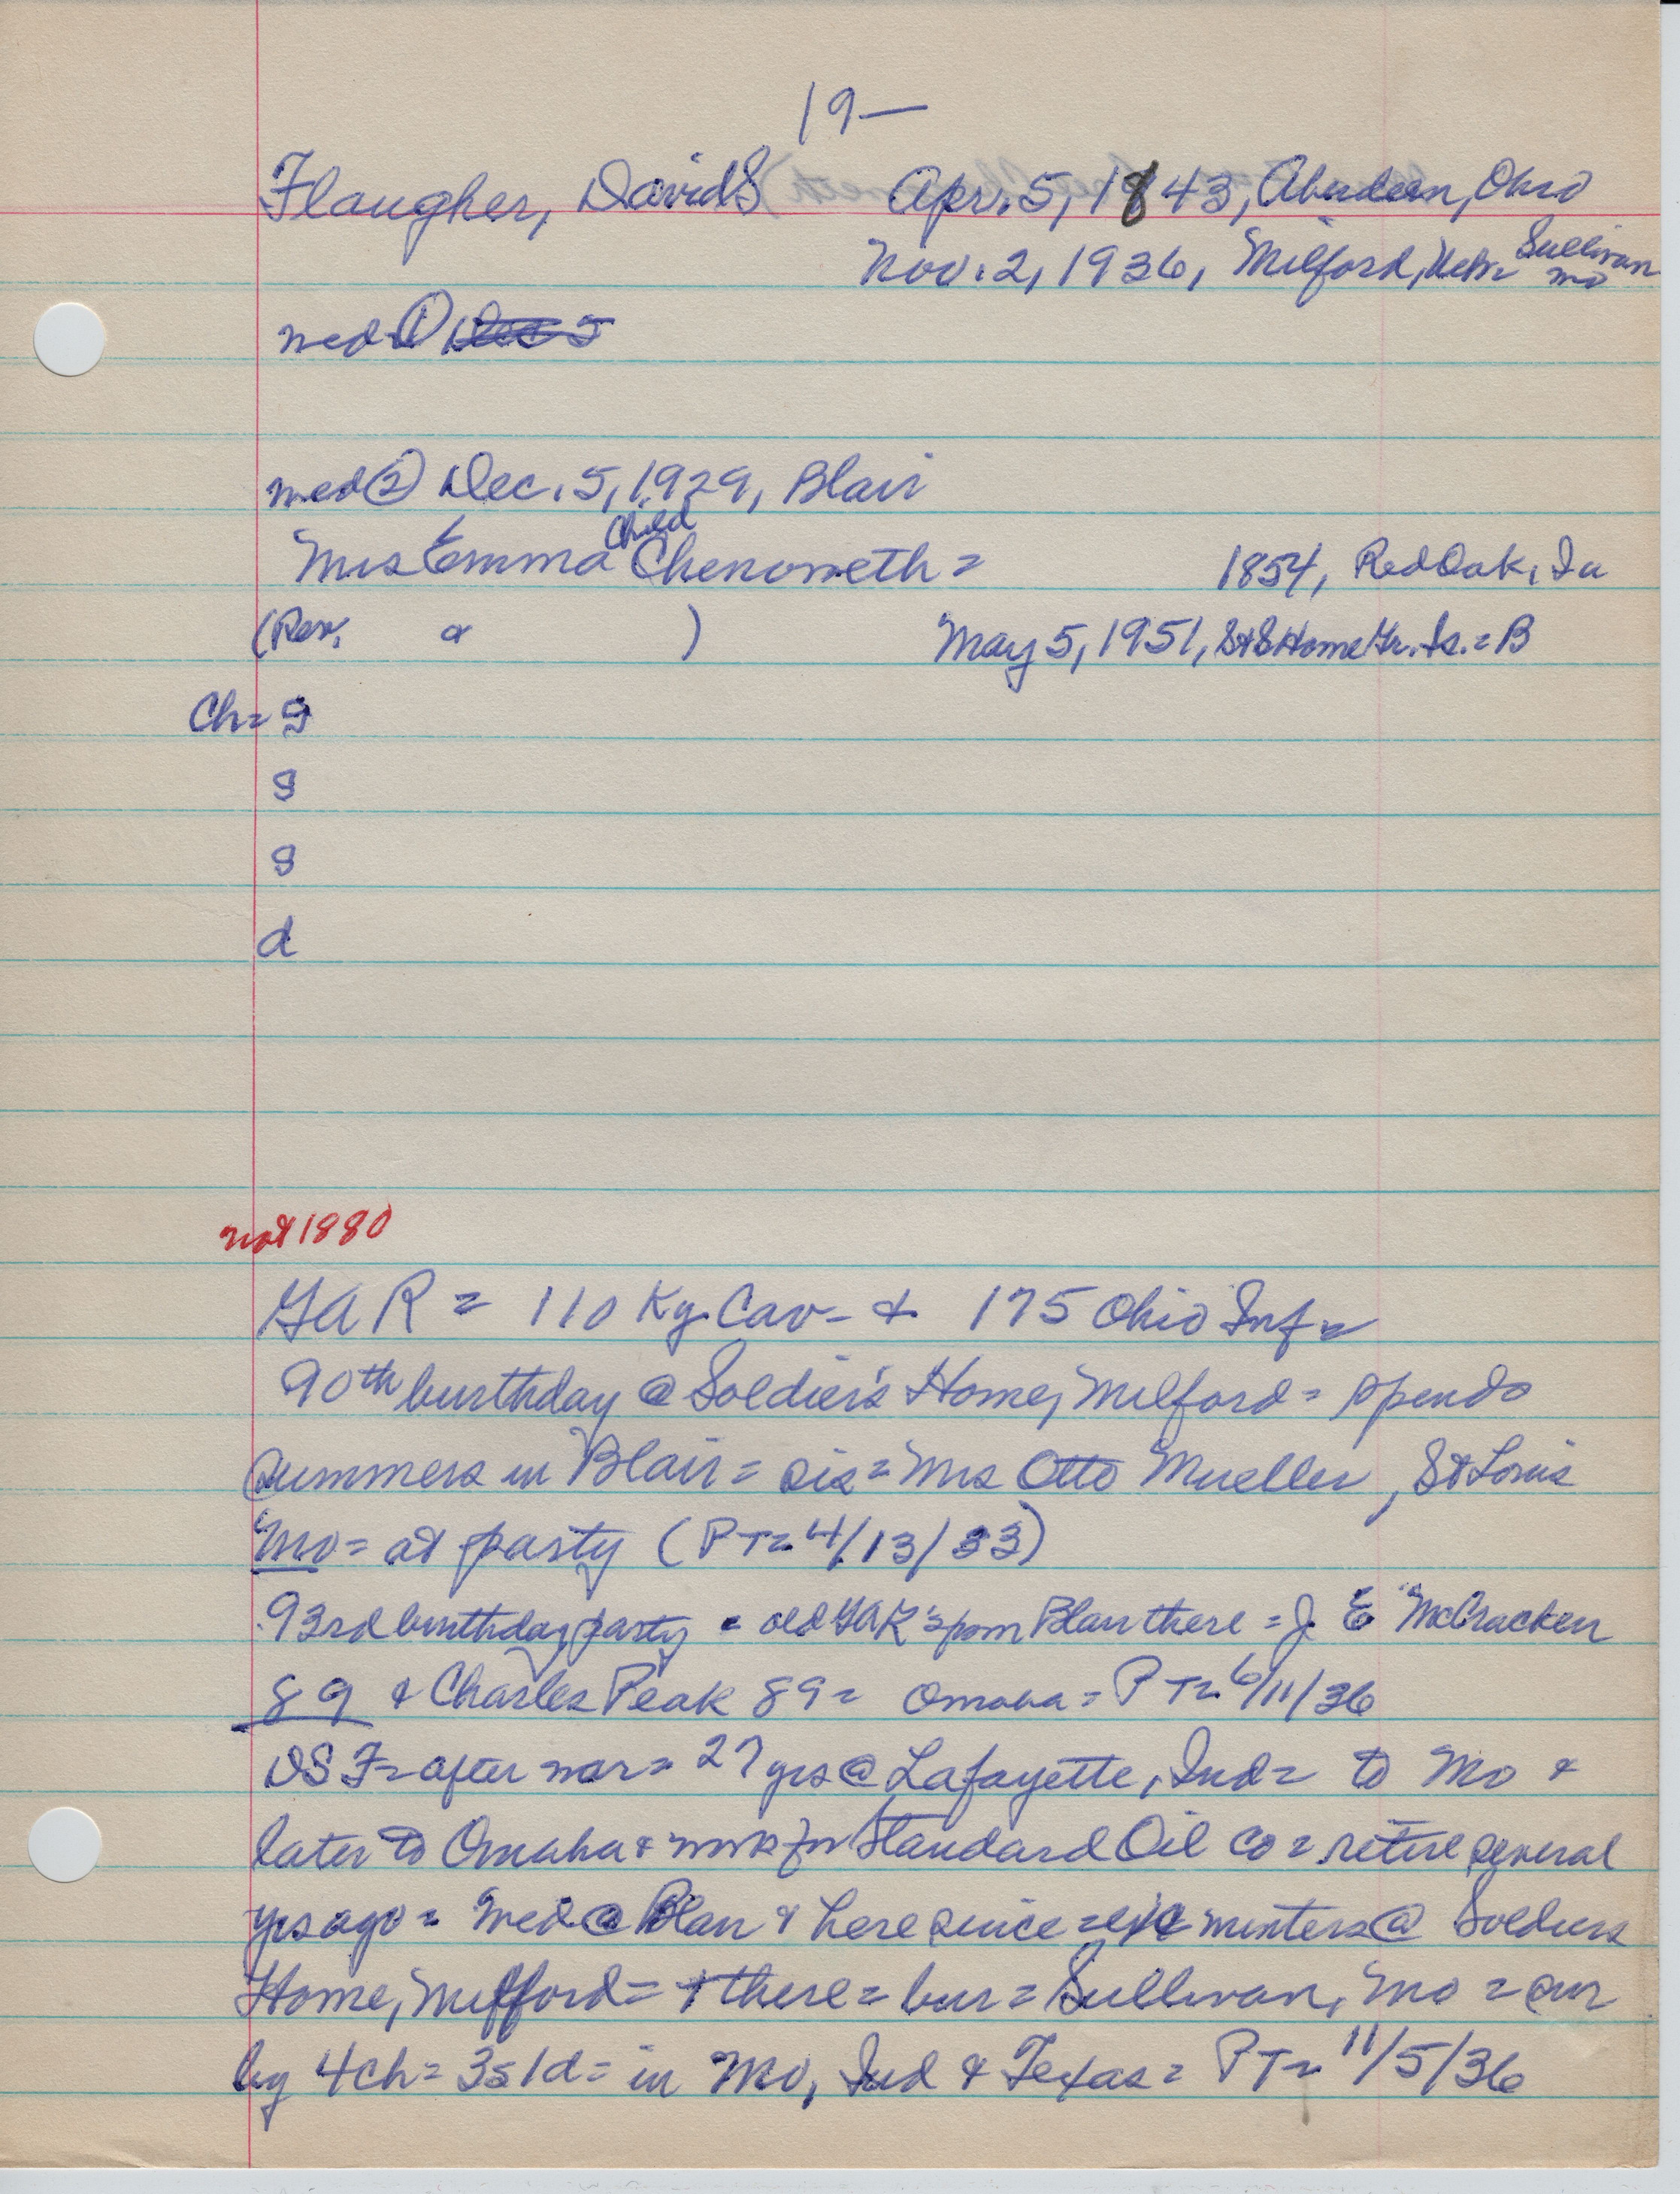 19—
Flaugher, David S Apr. 5, 1843, Aberdeen, Ohio
Nov. 2, 1936, Milford, Neb= Sullivan Mo
med ① Dec 5
med ② Dec. 5, 1929, Blair
Mrs Emma Child Chenoweth = 1854, Red Oak, Ia
(Rev. & ) May 5, 1951, S&S Home Gr. Is. = B
Ch= S
S
S
d
not 1880
GAR = 110 Ky. Cav- & 175 Ohio Inf =
90th burthday @ Soldier's Home, Milford = spends
summers in Blair = sis = Mrs Otto Mueller, St Louis
Mo = at party (PT= 4/13/33)
93rd birthday party = old GAR's from Blair there = J E McCracken
89 & Charles Peak 89 = Omaha = PT= 6/11/36
DSF= after war = 27 yrs @ Lafayette, Ind = to Mo &
later to Omaha & work for Standard Oil Co = retire several
yrs ago = med @ Blair & here since = winters @ Soldiers
Home, Milford = + there = bur = Sullivan, Mo = sur
by 4 ch = 3s 1d = in Mo, Ind & Texas = PT= 11/5/36